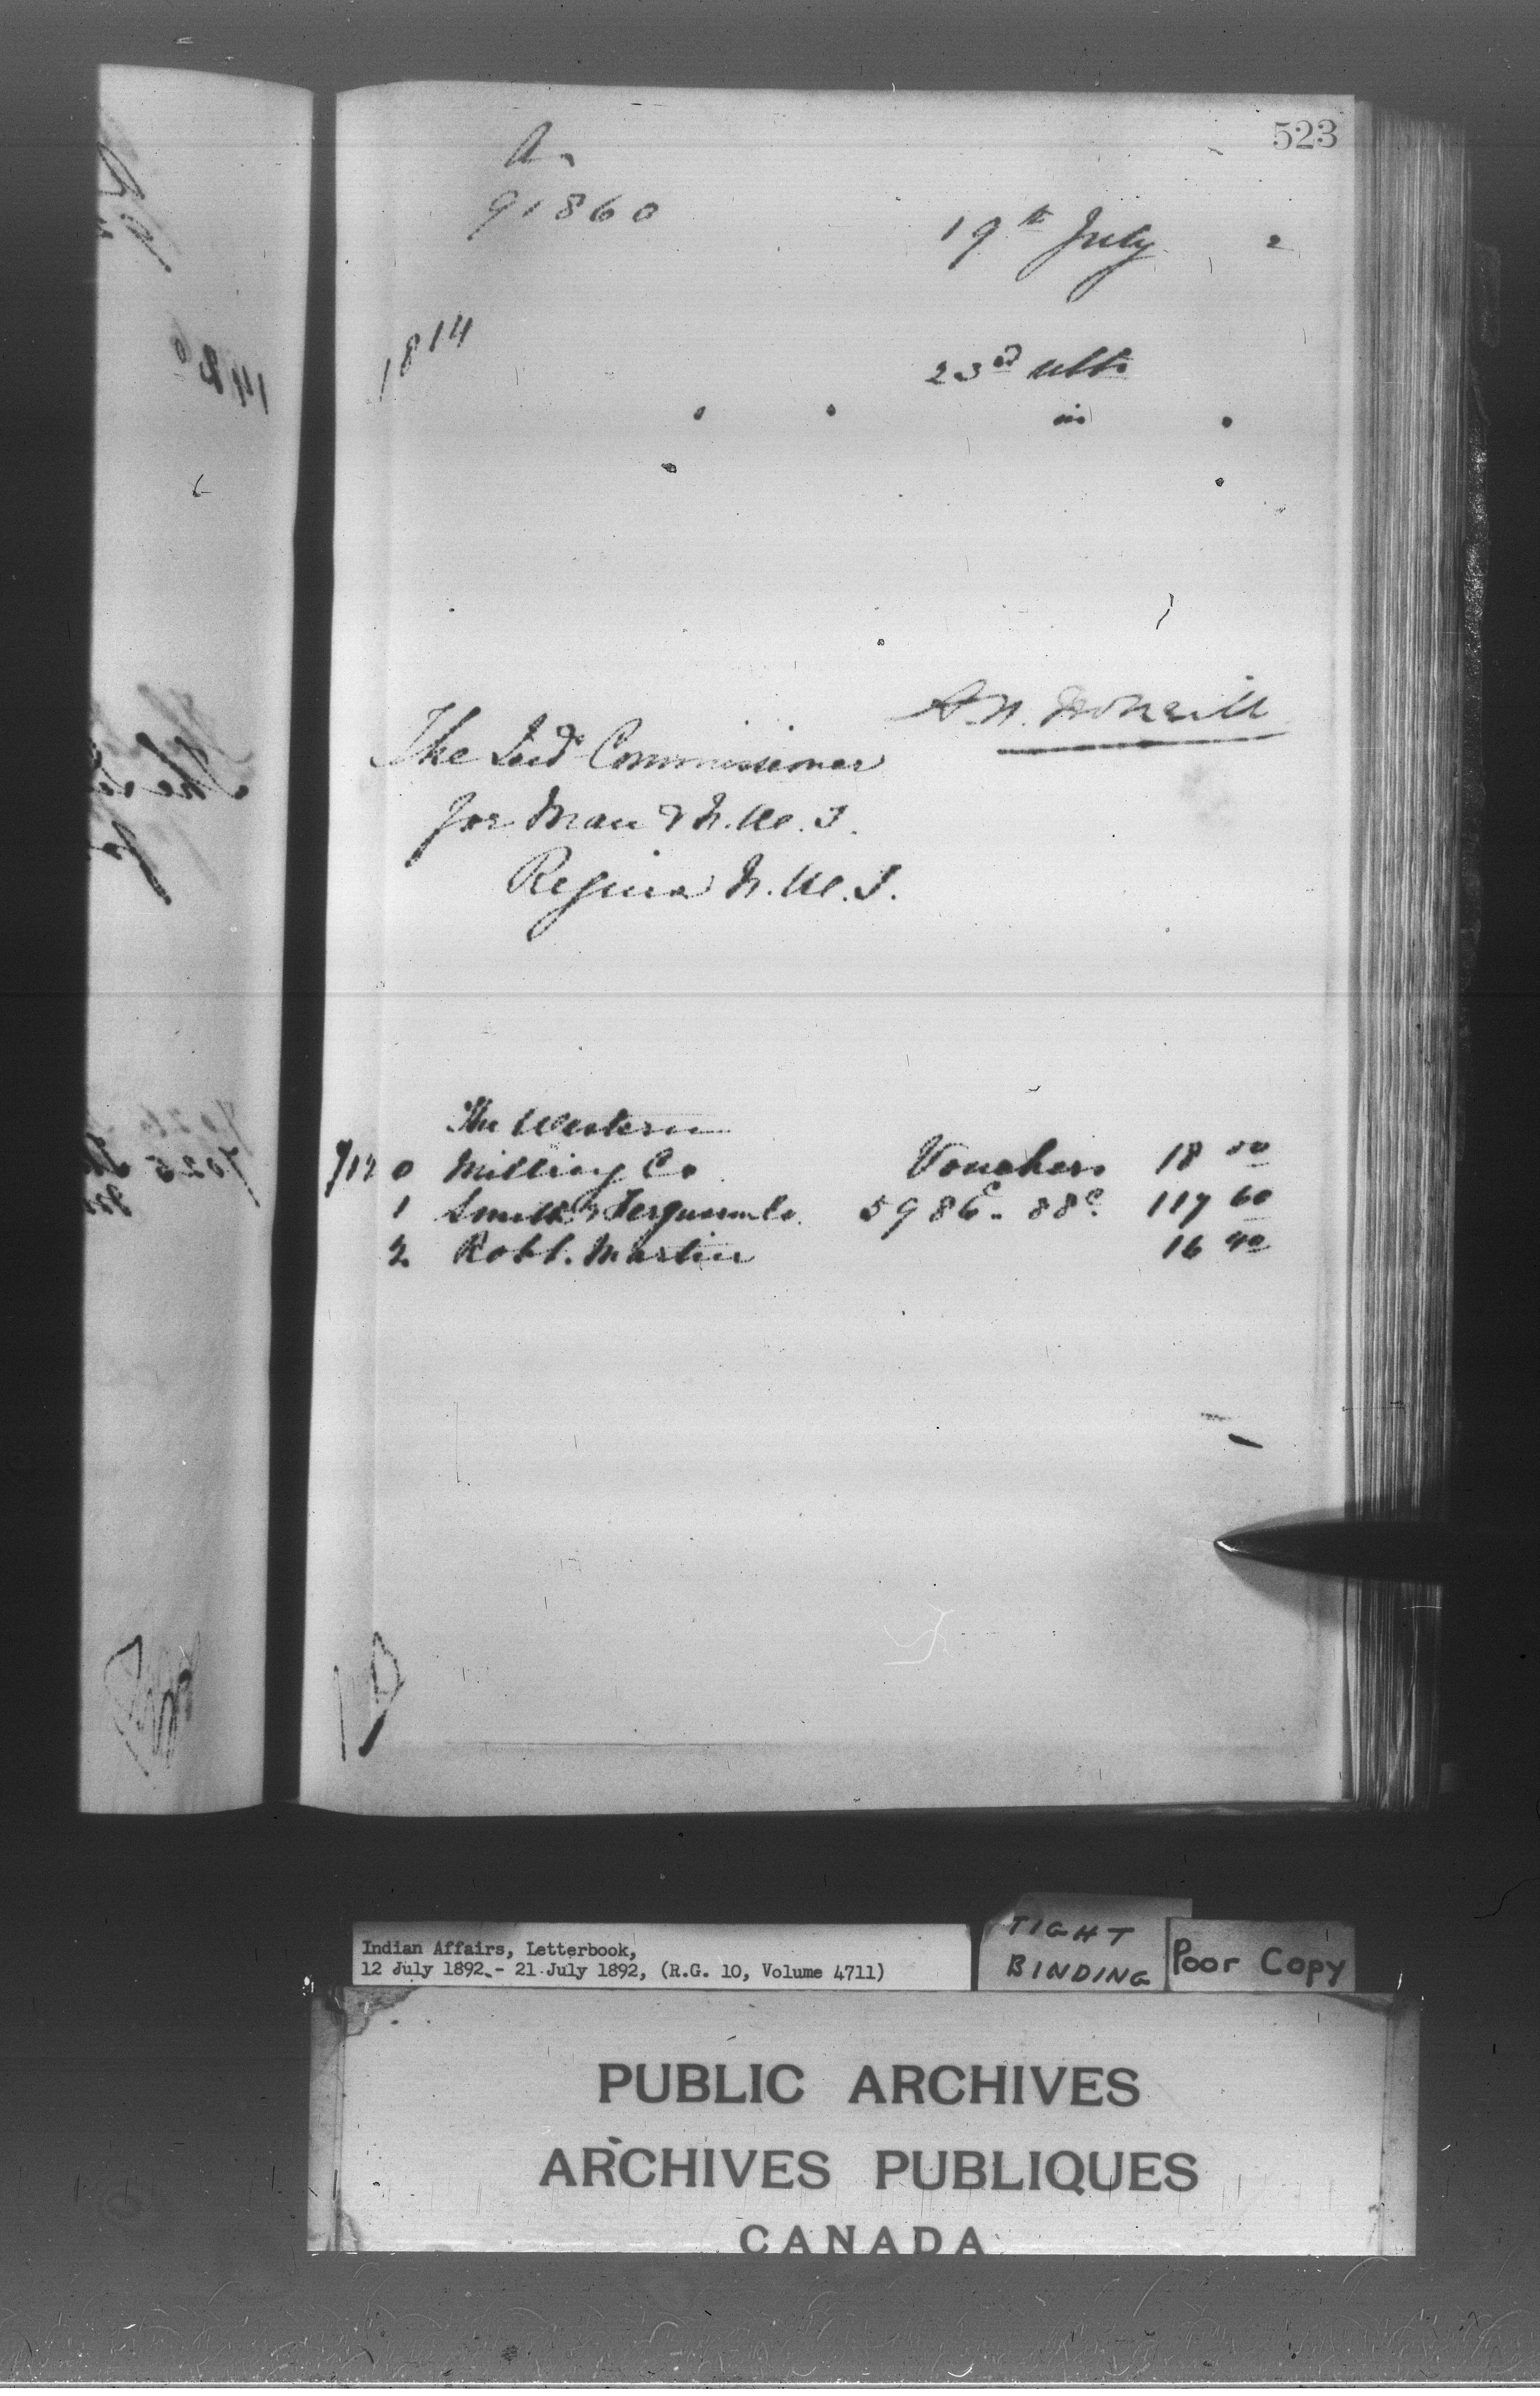 523
A.
91860
19th July 2
1814
23rd ulto
in
A.N. McNeill
The Ind Commissioner
for Man & N.W.T.
Regina N.W.T.
The Western
7120 Milling Co Vouchers 18 50
1 Smith & Ferguson Co. 5986c - 88c 117 60
2 Robt. Martin 16 40
Indian Affairs, Letterbook,
12 July 1892 - 21 July 1892, (R.G. 10, Volume 4711)
TIGHT
BINDING
Poor Copy
PUBLIC ARCHIVES
ARCHIVES PUBLIQUES
CANADA